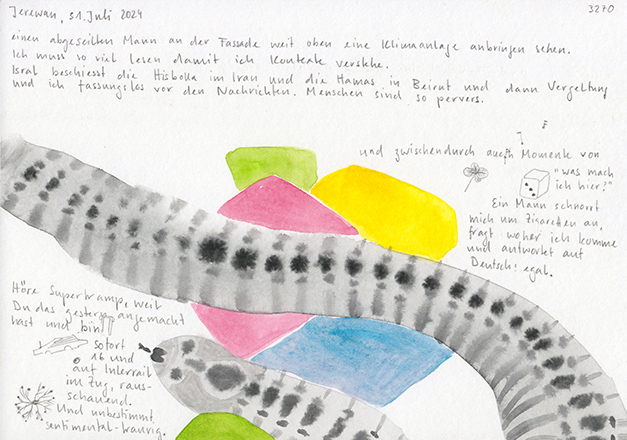 Jerewan, 31. Juli 2024
3270
einen abgeseilten Mann an der Fassade weit oben eine Klimaanlage anbringen sehen.
Ich muss so viel lesen damit ich Kontexte verstehe.
Isral beschiesst die Hisbolla im Iran und die Hamas in Beirut und dann Vergeltung
und ich fassungslos vor den Nachrichten. Menschen sind so pervers.
und zwischendurch auch Momente von
"was mach
ich hier?"
Ein Mann schnorrt
mich um Zigaretten an,
fragt woher ich komme
und antwortet auf
Deutsch: egal.
Höre Supertramp, weil
Du das gestern angemacht
hast und bin
sofort
16 und
auf Interrail
im Zug, raus-
schauend.
Und unbestimmt
sentimental-traurig.